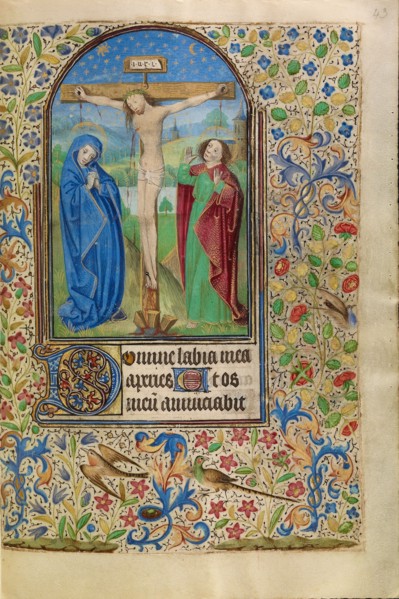 43
INRI
Domine labia mea
aperies Et os
meū annūciabit